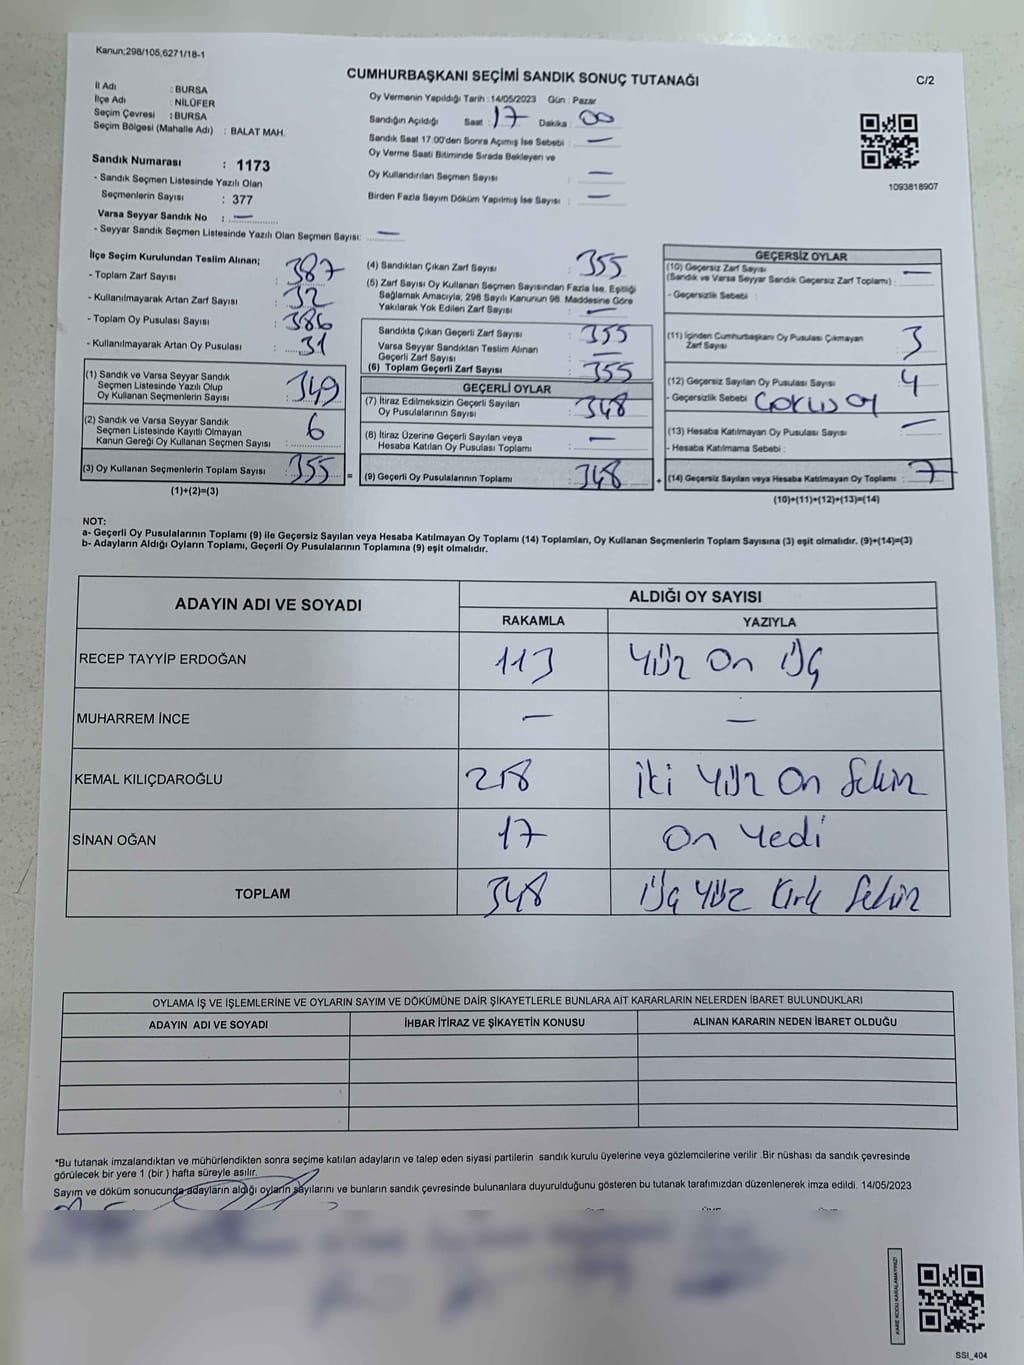 Kanun;298/105,6271/18-1
CUMHURBAŞKANI SEÇİMİ SANDIK SONUÇ TUTANAĞI
C/2
İl Adı : BURSA
İlçe Adı : NİLÜFER
Seçim Çevresi : BURSA
Seçim Bölgesi (Mahalle Adı) : BALAT MAH.
Sandık Numarası : 1173
- Sandık Seçmen Listesinde Yazılı Olan
Seçmenlerin Sayısı : 377
Varsa Seyyar Sandık No : —
- Seyyar Sandık Seçmen Listesinde Yazılı Olan Seçmen Sayısı: —
Oy Vermenin Yapıldığı Tarih : 14/05/2023 Gün : Pazar
Sandığın Açıldığı Saat : 17 Dakika : 00
Sandık Saat 17.00'den Sonra Açımış İse Sebebi : —
Oy Verme Saati Bitiminde Sırada Bekleyen ve
Oy Kullandırılan Seçmen Sayısı : —
Birden Fazla Sayım Döküm Yapılmış İse Sayısı : —
1093818907
İlçe Seçim Kurulundan Teslim Alınan;
- Toplam Zarf Sayısı : 387
- Kullanılmayarak Artan Zarf Sayısı : 32
- Toplam Oy Pusulası Sayısı : 386
- Kullanılmayarak Artan Oy Pusulası : 31
(1) Sandık ve Varsa Seyyar Sandık
Seçmen Listesinde Yazılı Olup
Oy Kullanan Seçmenlerin Sayısı : 349
(2) Sandık ve Varsa Seyyar Sandık
Seçmen Listesinde Kayıtlı Olmayan
Kanun Gereği Oy Kullanan Seçmen Sayısı : 6
(3) Oy Kullanan Seçmenlerin Toplam Sayısı : 355 =
(1)+(2)=(3)
(4) Sandıktan Çıkan Zarf Sayısı : 355
(5) Zarf Sayısı Oy Kullanan Seçmen Sayısından Fazla İse, Eşitliği
Sağlamak Amacıyla, 298 Sayılı Kanunun 98. Maddesine Göre
Yakılarak Yok Edilen Zarf Sayısı : —
Sandıkta Çıkan Geçerli Zarf Sayısı : 355
Varsa Seyyar Sandıktan Teslim Alınan
Geçerli Zarf Sayısı : —
(6) Toplam Geçerli Zarf Sayısı : 355
GEÇERLİ OYLAR
(7) İtiraz Edilmeksizin Geçerli Sayılan
Oy Pusulalarının Sayısı : 348
(8) İtiraz Üzerine Geçerli Sayılan veya
Hesaba Katılan Oy Pusulası Toplamı : —
(9) Geçerli Oy Pusulalarının Toplamı : 348 +
GEÇERSİZ OYLAR
(10) Geçersiz Zarf Sayısı
(Sandık ve Varsa Seyyar Sandık Geçersiz Zarf Toplamı) : —
- Geçersizlik Sebebi :
(11) İçinden Cumhurbaşkanı Oy Pusulası Çıkmayan
Zarf Sayısı : 3
(12) Geçersiz Sayılan Oy Pusulası Sayısı : 4
- Geçersizlik Sebebi
(13) Hesaba Katılmayan Oy Pusulası Sayısı : —
- Hesaba Katılmama Sebebi :
(14) Geçersiz Sayılan veya Hesaba Katılmayan Oy Toplamı : 7
(10)+(11)+(12)+(13)=(14)
NOT:
a- Geçerli Oy Pusulalarının Toplamı (9) ile Geçersiz Sayılan veya Hesaba Katılmayan Oy Toplamı (14) Toplamları, Oy Kullanan Seçmenlerin Toplam Sayısına (3) eşit olmalıdır. (9)+(14)=(3)
b- Adayların Aldığı Oyların Toplamı, Geçerli Oy Pusulalarının Toplamına (9) eşit olmalıdır.
ADAYIN ADI VE SOYADI
ALDIĞI OY SAYISI
RAKAMLA YAZIYLA
RECEP TAYYİP ERDOĞAN 113 Yüz On Üç
MUHARREM İNCE — —
KEMAL KILIÇDAROĞLU 218 İki Yüz On Sekiz
SİNAN OĞAN 17 On Yedi
TOPLAM 348 Üç Yüz Kırk Sekiz
OYLAMA İŞ VE İŞLEMLERİNE VE OYLARIN SAYIM VE DÖKÜMÜNE DAİR ŞİKAYETLERLE BUNLARA AİT KARARLARIN NELERDEN İBARET BULUNDUKLARI
ADAYIN ADI VE SOYADI İHBAR İTİRAZ VE ŞİKAYETİN KONUSU ALINAN KARARIN NEDEN İBARET OLDUĞU
*Bu tutanak imzalandıktan ve mühürlendikten sonra seçime katılan adayların ve talep eden siyasi partilerin sandık kurulu üyelerine veya gözlemcilerine verilir .Bir nüshası da sandık çevresinde
görülecek bir yere 1 (bir ) hafta süreyle asılır.
Sayım ve döküm sonucunda adayların aldığı oyların sayılarını ve bunların sandık çevresinde bulunanlara duyurulduğunu gösteren bu tutanak tarafımızdan düzenlenerek imza edildi. 14/05/2023
KARE KODU KARALAMAYINIZ!
SSI_404